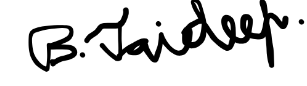 B. Jaideep.